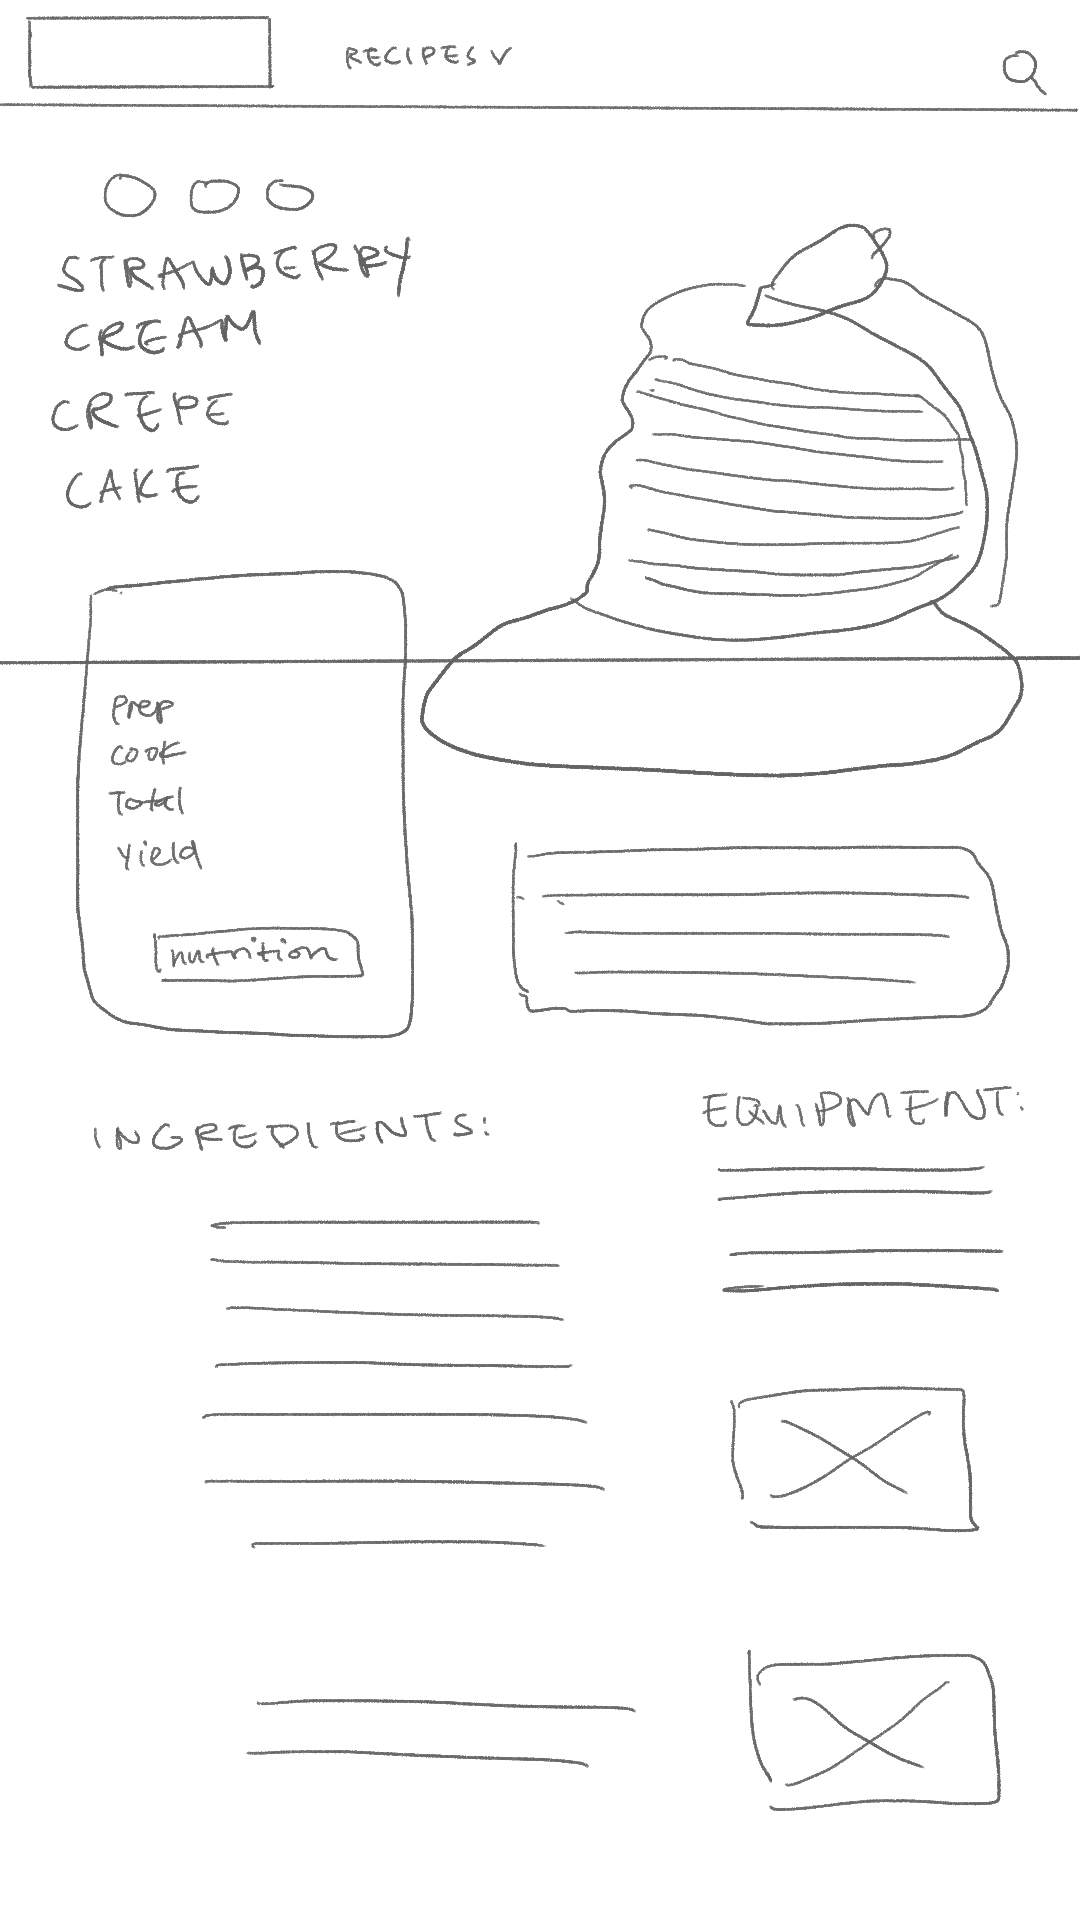 RECIPES V
STRAWBERRY
CREAM
CREPE
CAKE
Prep
cook
Total
Yield
nutrition
INGREDIENTS:
EQUIPMENT: